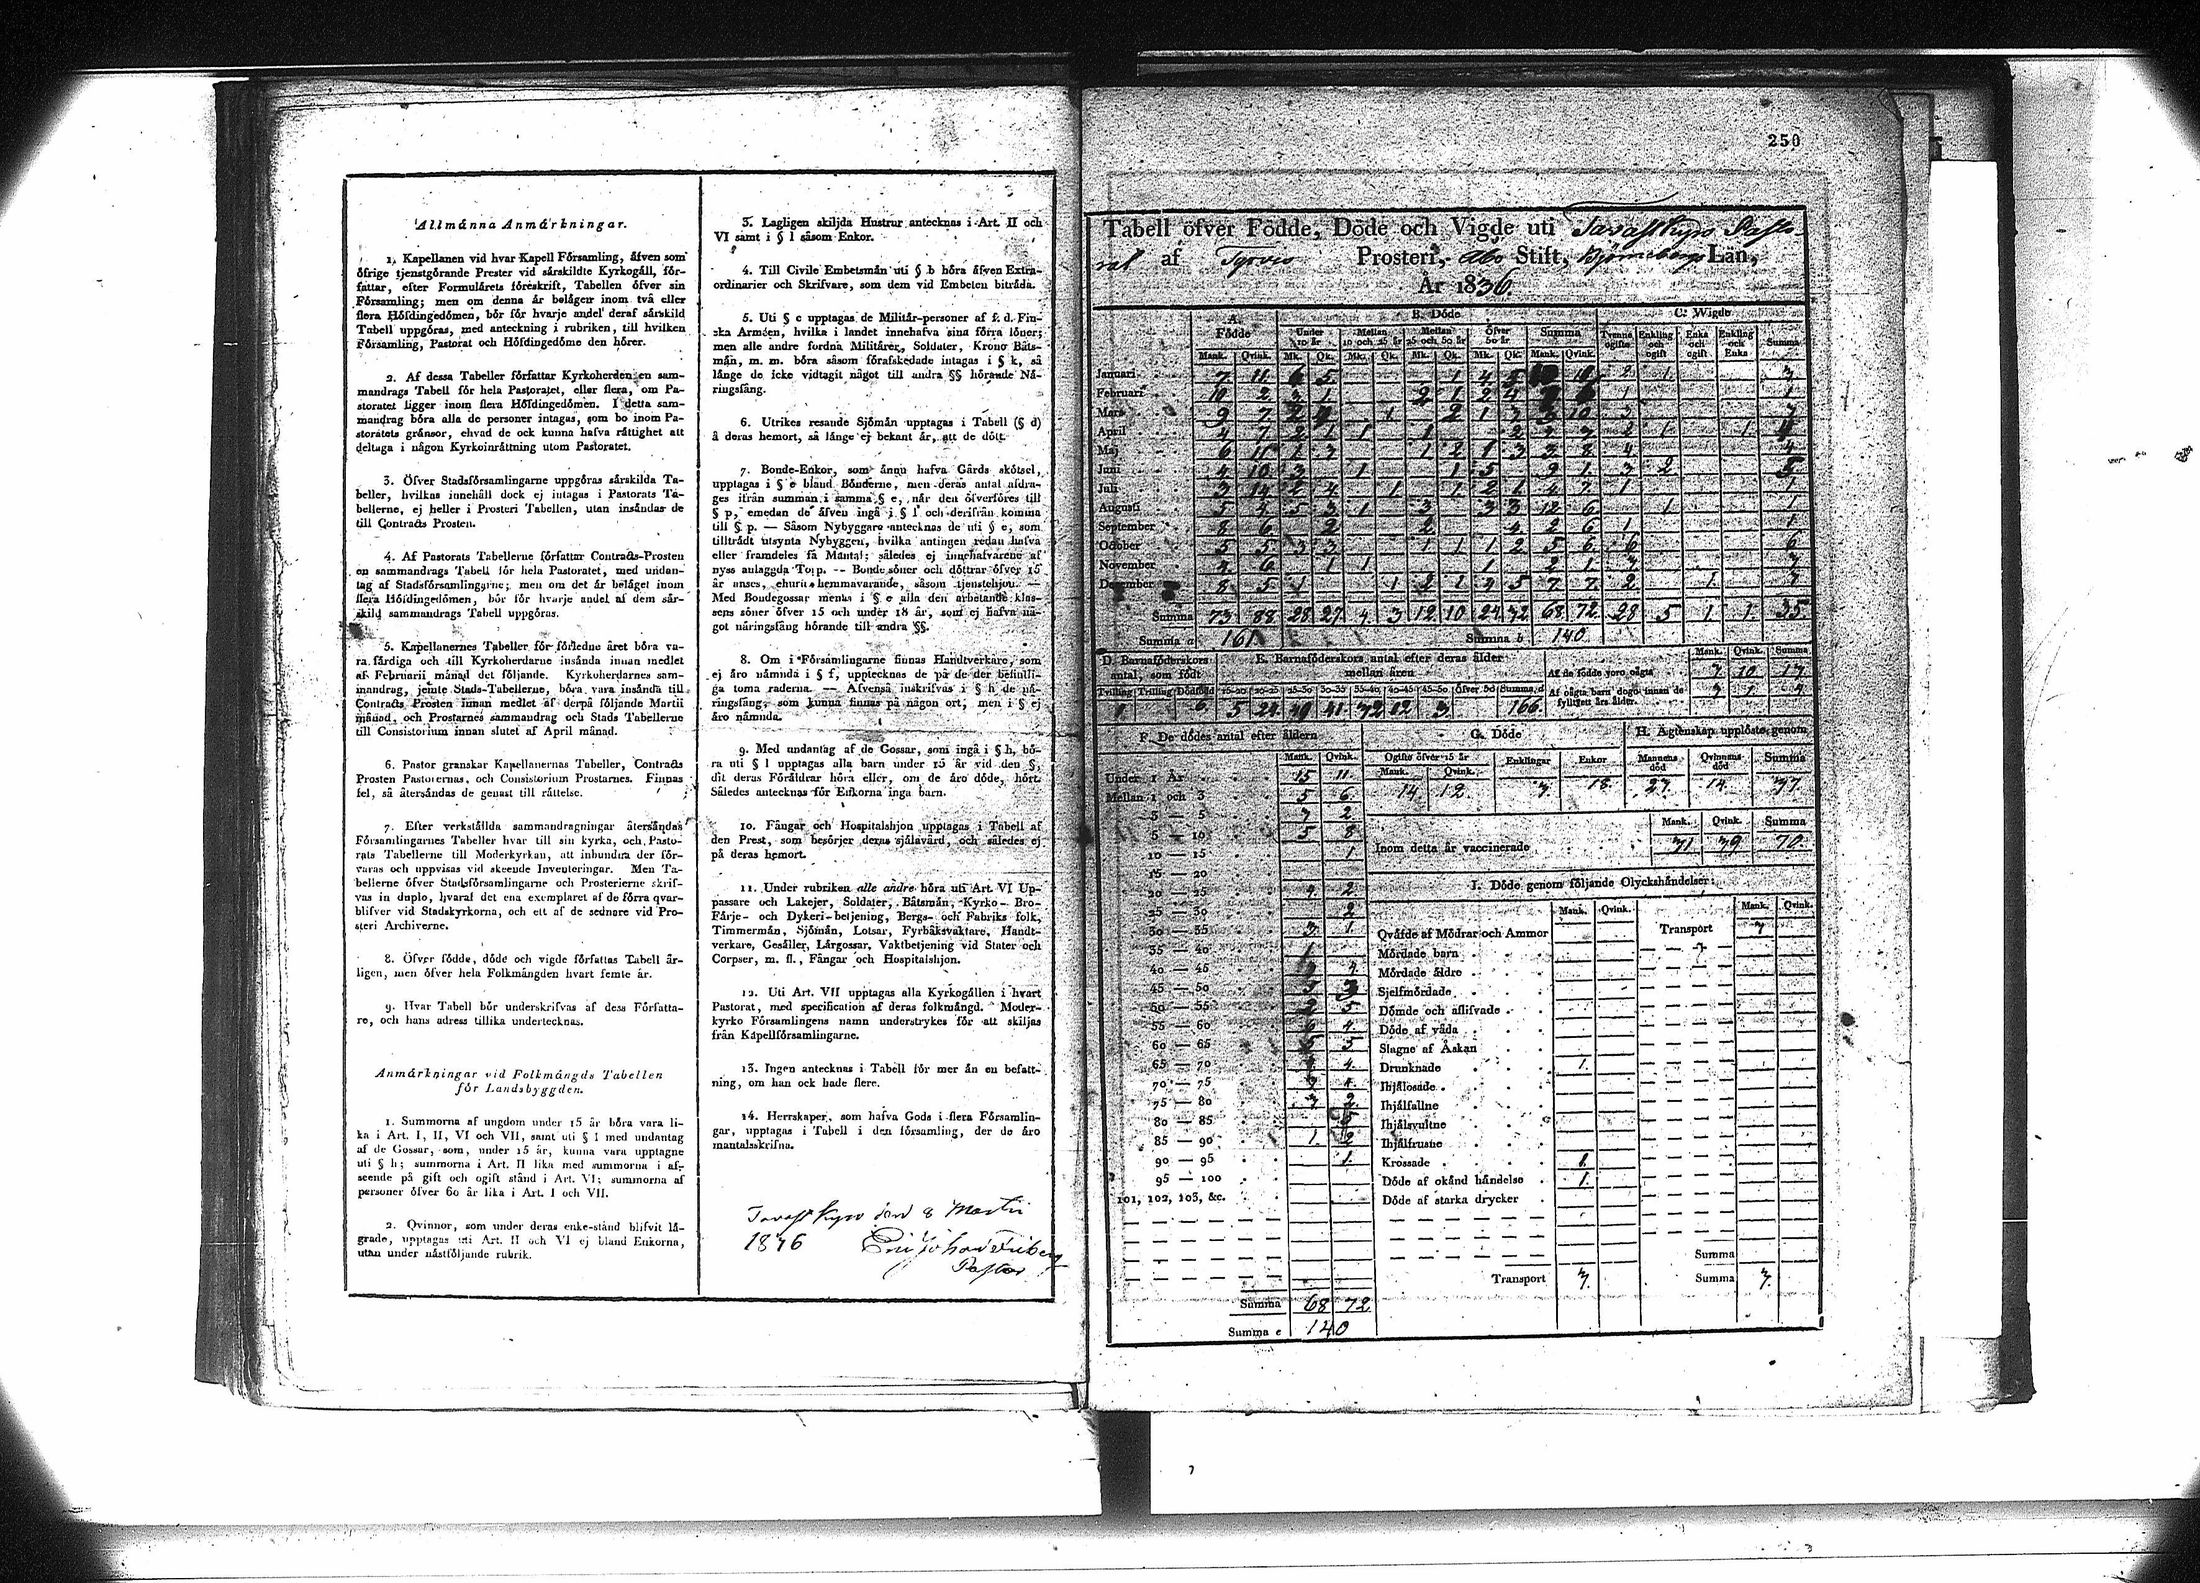 Allmänna Anmärkningar.
1. Kapellanen vid hvar Kapell Församling, äfven som
öfrige tjenstgörande Prester vid särskildte Kyrkogåll, för-
fattar, efter Formulärets föreskrift, Tabellen öfver sin
Församling; men om denna är belägen inom två eller
flera Höfdingedömen, bör för hvarje andel deraf särskild
Tabell uppgöras, med anteckning i rubriken, till hvilken
Församling, Pastorat och Höfdingedöme den hörer.
2. Af dessa Tabeller författar Kyrkoherden en sam-
mandrags Tabell för hela Pastoratet, eller flera, om Pa-
storatet ligger inom flera Höfdingedömen. I detta sam-
mandrag böra alla de personer intagas, som bo inom Pa-
storatets gränsor, ehvad de ock kunna hafva rättighet att
deltaga i någon Kyrkoinrättning utom Pastoratet.
3. Öfver Stadsförsamlingarne uppgöras särskilda Ta-
beller, hvilkas innehåll dock ej intagas i Pastorats Ta-
bellerne, ej heller i Prosteri Tabellen, utan insändas de
till Contracts Prosten.
4. Af Pastorats Tabellerne författar Contracts-Prosten
en sammandrags Tabell för hela Pastoratet, med undan-
tag af Stadsförsamlingarne; men om det är beläget inom
flera Höfdingedömen, bör för hvarje andel af dem sär-
skild sammandrags Tabell uppgöras.
5. Kapellanernes Tabeller för förledne året böra va-
ra färdiga och till Kyrkoherdarne insända innan medlet
af Februarii månad det följande. Kyrkoherdarnes sam-
mandrag, jemte Stads-Tabellerne, böra vara insända till
Contracts Prosten innan medlet af derpå följande Martii
månad, och Prostarnes sammandrag och Stads Tabellerne
till Consistorium innan slutet af April månad.
6. Pastor granskar Kapellanernas Tabeller, Contracts
Prosten Pastorernas, och Consistorium Prostarnes. Finnas
fel, så återsändas de genast till rättelse.
7. Efter verkställda sammandragningar återsändas
Församlingarnes Tabeller hvar till sin kyrka, och Pasto-
rats Tabellerne till Moderkyrkan, att inbundna der för-
varas och uppvisas vid skeende Inventeringar. Men Ta-
bellerne öfver Stadsförsamlingarne och Prosterierne skrif-
vas in duplo, hvaraf det ena exemplaret af de förra qvar-
blifver vid Stadskyrkorna, och ett af de sednare vid Pro-
steri Archiverne.
8. Öfver födde, döde och vigde författas Tabell år-
ligen, men öfver hela Folkmängden hvart femte år.
9. Hvar Tabell bör underskrifvas af dess Författa-
re, och hans adress tillika undertecknas.
Anmärkningar vid Folkmängds Tabellen
för Landsbyggden.
1. Summorna af ungdom under 15 år böra vara li-
ka i Art. I, II, VI och VII, samt uti § l med undantag
af de Gossar, som, under 15 år, kunna vara upptagne
uti § h; summorna i Art. II lika med summorna i af-
seende på gift och ogift stånd i Art. VI; summorna af
personer öfver 60 år lika i Art. I och VII.
2. Qvinnor, som under deras enke-stånd blifvit lä-
grade, upptagas uti Art. II och VI ej bland Enkorna,
utan under nästföljande rubrik.
3. Lagligen skiljda Hustrur antecknas i Art. II och
VI samt i § l såsom Enkor.
4. Till Civile Embetsmän uti § b höra äfven Extra-
ordinarier och Skrifvare, som dem vid Embeten biträda.
5. Uti § c upptagas de Militär-personer af f. d. Fin-
ska Arméen, hvilka i landet innehafva sina förra löner;
men alle andre fordna Militärer, Soldater, Krono Båts-
män, m. m. böra såsom förafskedade intagas i § k, så
länge de icke vidtagit något till andra §§ hörande Nä-
ringsfång.
6. Utrikes resande Sjömän upptagas i Tabell (§ d)
å deras hemort, så länge ej bekant är, att de dött.
7. Bonde-Enkor, som ännu hafva Gårds skötsel,
upptagas i § e bland Bönderne, men deras antal afdra-
ges ifrån summan i samma § e, när den öfverföres till
§ p, emedan de äfven ingå i § l och derifrån komma
till § p. — Såsom Nybyggare antecknas de uti § e, som
tillträdt utsynta Nybyggen, hvilka antingen redan hafva
eller framdeles få Mantal; således ej innehafvarene af
nyss anlaggda Torp. -- Bonde söner och döttrar öfver 15
år anses, ehuru hemmavarande, såsom tjenstehjon. —
Med Bondegossar menas i § e alla den arbetande klas-
sens söner öfver 15 och under 18 år, som ej hafva nå-
got näringsfång hörande till andra §§.
8. Om i Församlingarne finnas Handtverkare, som
ej äro nämnda i § f, upptecknas de på de der befintli-
ga toma raderna. — Äfvenså inskrifvas i § h de nä-
ringsfång, som kunna finnas på någon ort, men i § ej
äro nämnda.
9. Med undantag af de Gossar, som ingå i § h, bö-
ra uti § l upptagas alla barn under 15 år vid den §,
dit deras Föräldrar höra eller, om de äro döde, hört.
Således antecknas för Enkorna inga barn.
10. Fångar och Hospitalshjon upptagas i Tabell af
den Prest, som besörjer deras själavård, och således ej
på deras hemort.
11. Under rubriken alle andre höra uti Art. VI Up-
passare och Lakejer, Soldater, Båtsmän, Kyrko- Bro-
Färje- och Dykeri-betjening, Bergs- och Fabriks folk,
Timmermän, Sjömän, Lotsar, Fyrbåksvaktare, Handt-
verkare, Gesäller, Lärgossar, Vaktbetjening vid Stater och
Corpser, m. fl., Fångar och Hospitalshjon.
12. Uti Art. VII upptagas alla Kyrkogällen i hvart
Pastorat, med specification af deras folkmängd. Moder-
kyrko Församlingens namn understrykes för att skiljas
från Kapellförsamlingarne.
13. Ingen antecknas i Tabell för mer än en befatt-
ning, om han ock hade flere.
14. Herrskaper, som hafva Gods i flera Församlin-
gar, upptagas i Tabell i den församling, der de äro
mantalsskrifna.
Tavast Kyro den 8 Martii
Pastor
250
Tabell öfver Födde, Döde och Vigde uti Tavast Kyro Pasto-
rat af Tyrvis Prosteri, Åbo Stift, Björneborgs Län,
År 1836.
A. Födde B. Döde C. Vigde
Under 10 år Mellan 10 och 25 år Mellan 25 och 50 år Öfver 50 år Summa Tvenne ogifte Enkling och ogift Enka och ogift Enkling och Enka Summa
Mank. Qvink. Mk. Qk. Mk. Qk. Mk. Qk. Mk. Qk. Mank. Qvink.
Januari 7 11 6 5 1 4 5
Februari 10 2
Mars 9 7
April 4 7 2 1 1 1 2
Maj 6 11 1 3 1 2 1 3 3 8 4
Juni 4 10 3 1 1 5 9 1 3 2 5
Juli 3 14 2 4 1 1 2 1 4 7 1 1
Augusti 5 4 5 3 1 3 3 3 12 6 1 1
September 8 6 2 2 4 2 6 1 1
October 5 5 3 3 1 1 1 2 5 6 6 6
November 4 6 1 1 1 2 1
December 8 5 1 1 2 1 4 5 7 7 2 1
Summa 73 88 28 27 4 3 12 10 24 32 68 72 28 5 1 1 35
Summa a 161 Summa b 140
D. Barnaföderskors antal, som födt E. Barnaföderskors antal efter deras ålder mellan åren
Mank. Qvink. Summa
Af de födde voro oägta 7 10 17
Af oägta barn dogo innan de fylltett års ålder. 3 1 4
Tvilling Trilling Dödfödd 15-20 20-25 25-30 30-35 35-40 40-45 45-50 Öfver 50 Summa d
1 6 5 24 41 12 3 166
F. De dödes antal efter åldern G. Döde H. Ägtenskap upplöste genom
Mank. Qvink. Ogifte öfver 15 år Enklingar Enkor Mannens död Qvinnans död Summa
Mank. Qvink.
14 12 18
Under 1 År 15 11
Mellan 1 och 3 5 6
3 — 5 2
5 — 10 5 8
10 — 15 1
15 — 20
20 — 25 4 2
25 — 30 2
30 — 35 3 1
35 — 40 1
40 — 45 4
45 — 50 3
50 — 55 2 5
55 — 60 6 4
60 — 65
65 — 70 4
70 — 75
75 — 80 2
80 — 85
85 — 90 1 2
90 — 95 1
95 — 100
101, 102, 103, &c.
Summa 68 72
Summa e 140
Mank. Qvink. Summa
Inom detta år vaccinerade 31 39 70
I. Döde genom följande Olyckshändelser:
Mank. Qvink. Mank. Qvink.
Qväfde af Mödrar och Ammor Transport
Mördade barn
Mördade äldre
Sjelfmördade
Dömde och aflifvade
Döde af våda
Slagne af Åskan
Drunknade 1
Ihjälosade
Ihjälfallne
Ihjälsvultne
Ihjälfrusne
Krossade 1
Döde af okänd händelse 1
Döde af starka drycker
Summa
Transport 3 Summa 3